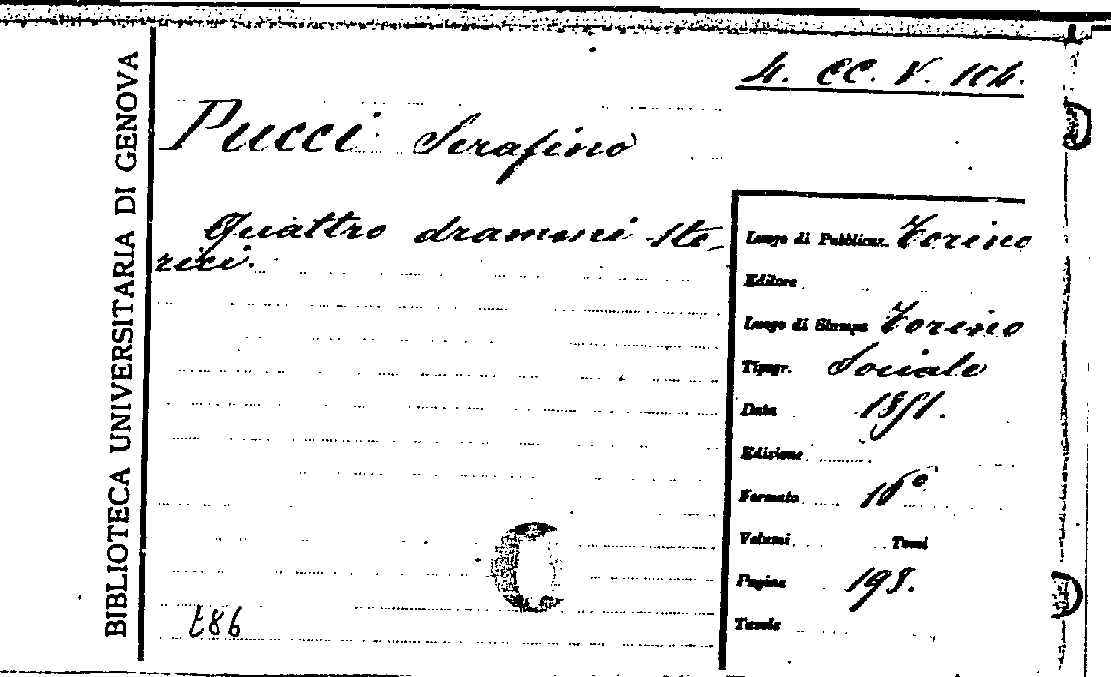 BIBLIOTECA UNIVERSITARIA DI GENOVA
4. CC. V. 104.
Pucci Serafino
Quattro drammi sto-
rici.
Luogo di Pubblicaz. Torino
Editore
Luogo di Stampa Torino
Tipogr. Sociale
Data 1851.
Edizione
Formato 16°
Volumi Tomi
Pagine 198.
Tavole
t86